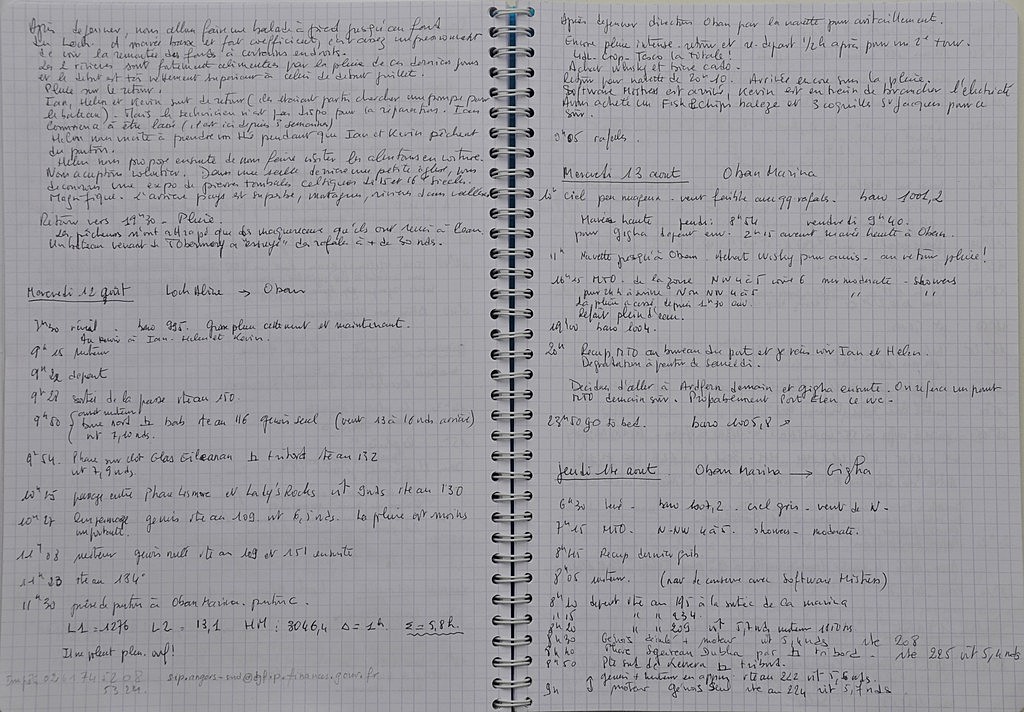 Après déjeuner, nous allons faire une balade à pied jusqu'au fond
du Loch. A marée basse et fort coefficient, c'est assez impressionnant
de voir la remontée des fonds à certains endroits.
Les 2 rivières sont fortement alimentées par la pluie de ces derniers jours
et le débit est très nettement supérieur à celui de début juillet.
Pluie sur le retour.
Ian, Helen et Kevin sont de retour (ils étaient partis chercher une pompe pour
le bateau) - Mais le technicien n'est pas dispo pour la réparation. Ian
commence à être lassé (il est ici depuis 3 semaines)
Helen nous invite à prendre un thé pendant que Ian et Kevin pêchent
du ponton.
Helen nous propose ensuite de nous faire visiter les alentours en voiture.
Nous acceptons volontiers. Dans une salle derrière une petite église, nous
découvrons une expo de pierres tombales celtiques du 15 et 16e siècle.
Magnifique. L'arrière pays est superbe, montagnes, rivières dans vallées
Retour vers 19h30 - Pluie.
Les pêcheurs n'ont attrapé que des maquereaux qu'ils ont remis à l'eau.
Un bateau venant de Tobermory a "essuyé" des rafales à + de 30 nds.
Mercredi 12 août Loch Aline → Oban
7h30 réveil. baro 995. Grosse pluie cette nuit et maintenant.
Au revoir à Ian - Helen et Kevin.
9h15 moteur
9h22 départ
9h28 sortie de la passe rte au 150.
9h50 arrêt moteur
bouée nord bab rte au 116 genois seul (vent 13 à 16 nds arrière)
vit 7,10 nds.
9h54. Phare sur îlot Glas Eileanan tribord rte au 132
vit 7,9 nds.
10h15 passage entre Phare Lismore et Lady's Rocks vit 9nds rte au 130
10h27 Empannage genois rte au 109. vit 6,5 nds. La pluie est moins
importante.
11h03 moteur genois roulé rte au 109 et 151 ensuite
11h23 rte au 134°
11h30 prise de ponton à Oban Marina. ponton C.
L1 = 1276 L2 = 13,1 HM : 3046,4 Δ = 1h. Σ = 5,8h.
Il ne pleut plus. ouf!
sip.angers-sud@dgfip.finances.gouv.fr
Après déjeuner direction Oban par la navette pour avitaillement.
Encore pluie intense. retour et re-départ 1/2h après pour un 2e tour.
Lidl - Coop - Tesco la totale!
Achat whisky et bière cado.
Retour par navette de 20h10. Arrivée encore sous la pluie.
Software Mistress est arrivé, Kevin est en train de brancher l'électricité
Avons acheté un Fish & Chips haleze et 3 coquilles St Jacques pour ce
soir.
9h05 rafales.
Mercredi 13 août Oban Marina
ciel peu nuageux - vent faible avec qq rafales. baro 1001,2
Marée haute jeudi : 8h54 vendredi 9h40.
pour Gigha départ env. 2h15 avant marée haute à Oban.
11h Navette jusqu'à Oban. Achat Wisky pour amis - au retour pluie!
16h15 MTO. de la zone NW 4 à 5 voire 6 mer moderate - showers
pour 24h à suivre N ou NW 4 à 5 " "
La pluie a cessé depuis 1h30 env.
Refait plein d'eau.
19h00 baro 1004.
20h Récup MTO au bureau du port et je vais voir Ian et Helen.
Dégradation à partir de samedi.
Décidons d'aller à Ardfern demain et Gigha ensuite. On refera un point
MTO demain soir. Probablement Port Ellen ce we -
23h50 go to bed. baro 1005,8 ↗
Jeudi 14 août Oban Marina → Gigha
6h30 levé - baro 1007,2 - ciel gris - vent de N -
7h15 MTO. N-NW 4 à 5. showers - moderate.
Récup dernier grib
8h05 moteur. (nav de conserve avec Software Mistress)
8h10 départ rte au 195 à la sortie de la marina
" " 234
8h20 " " 209 vit 5,7 nds moteur
8h30 Genois + moteur vit 5,4 nds rte 208
8h40 Phare Sgeirean Dubha par tribord - rte 225 vit 5,4 nds
8h50 Pte sud de Kerrera tribord.
genois + moteur en appui rte au 222 vit 5,6 nds.
9h moteur genois seul rte au 224 vit 5,7 nds